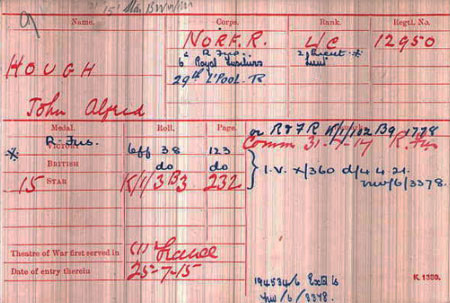 Name. Corps. Rank. Regtl. No.
HOUGH
John Alfred
NORF. R. L/C 12950
" R Fus.
6 Royal Fusiliers
29th L'Pool R
2/Lieut *
Lieut
Medal. Roll. Page.
R. Fus.
* VICTORY Off 38 123
BRITISH do do
15 STAR K/1/3 B3 232
or R & F R K/1/102 B9 1778
Comm 31-7-17 R. Fus
I.V. X/360 d/4.4.21.
nw/6/3378.
Theatre of War first served in (1) France
Date of entry therein 25-7-15
194534/6
nw/6/3378.
K. 1380.